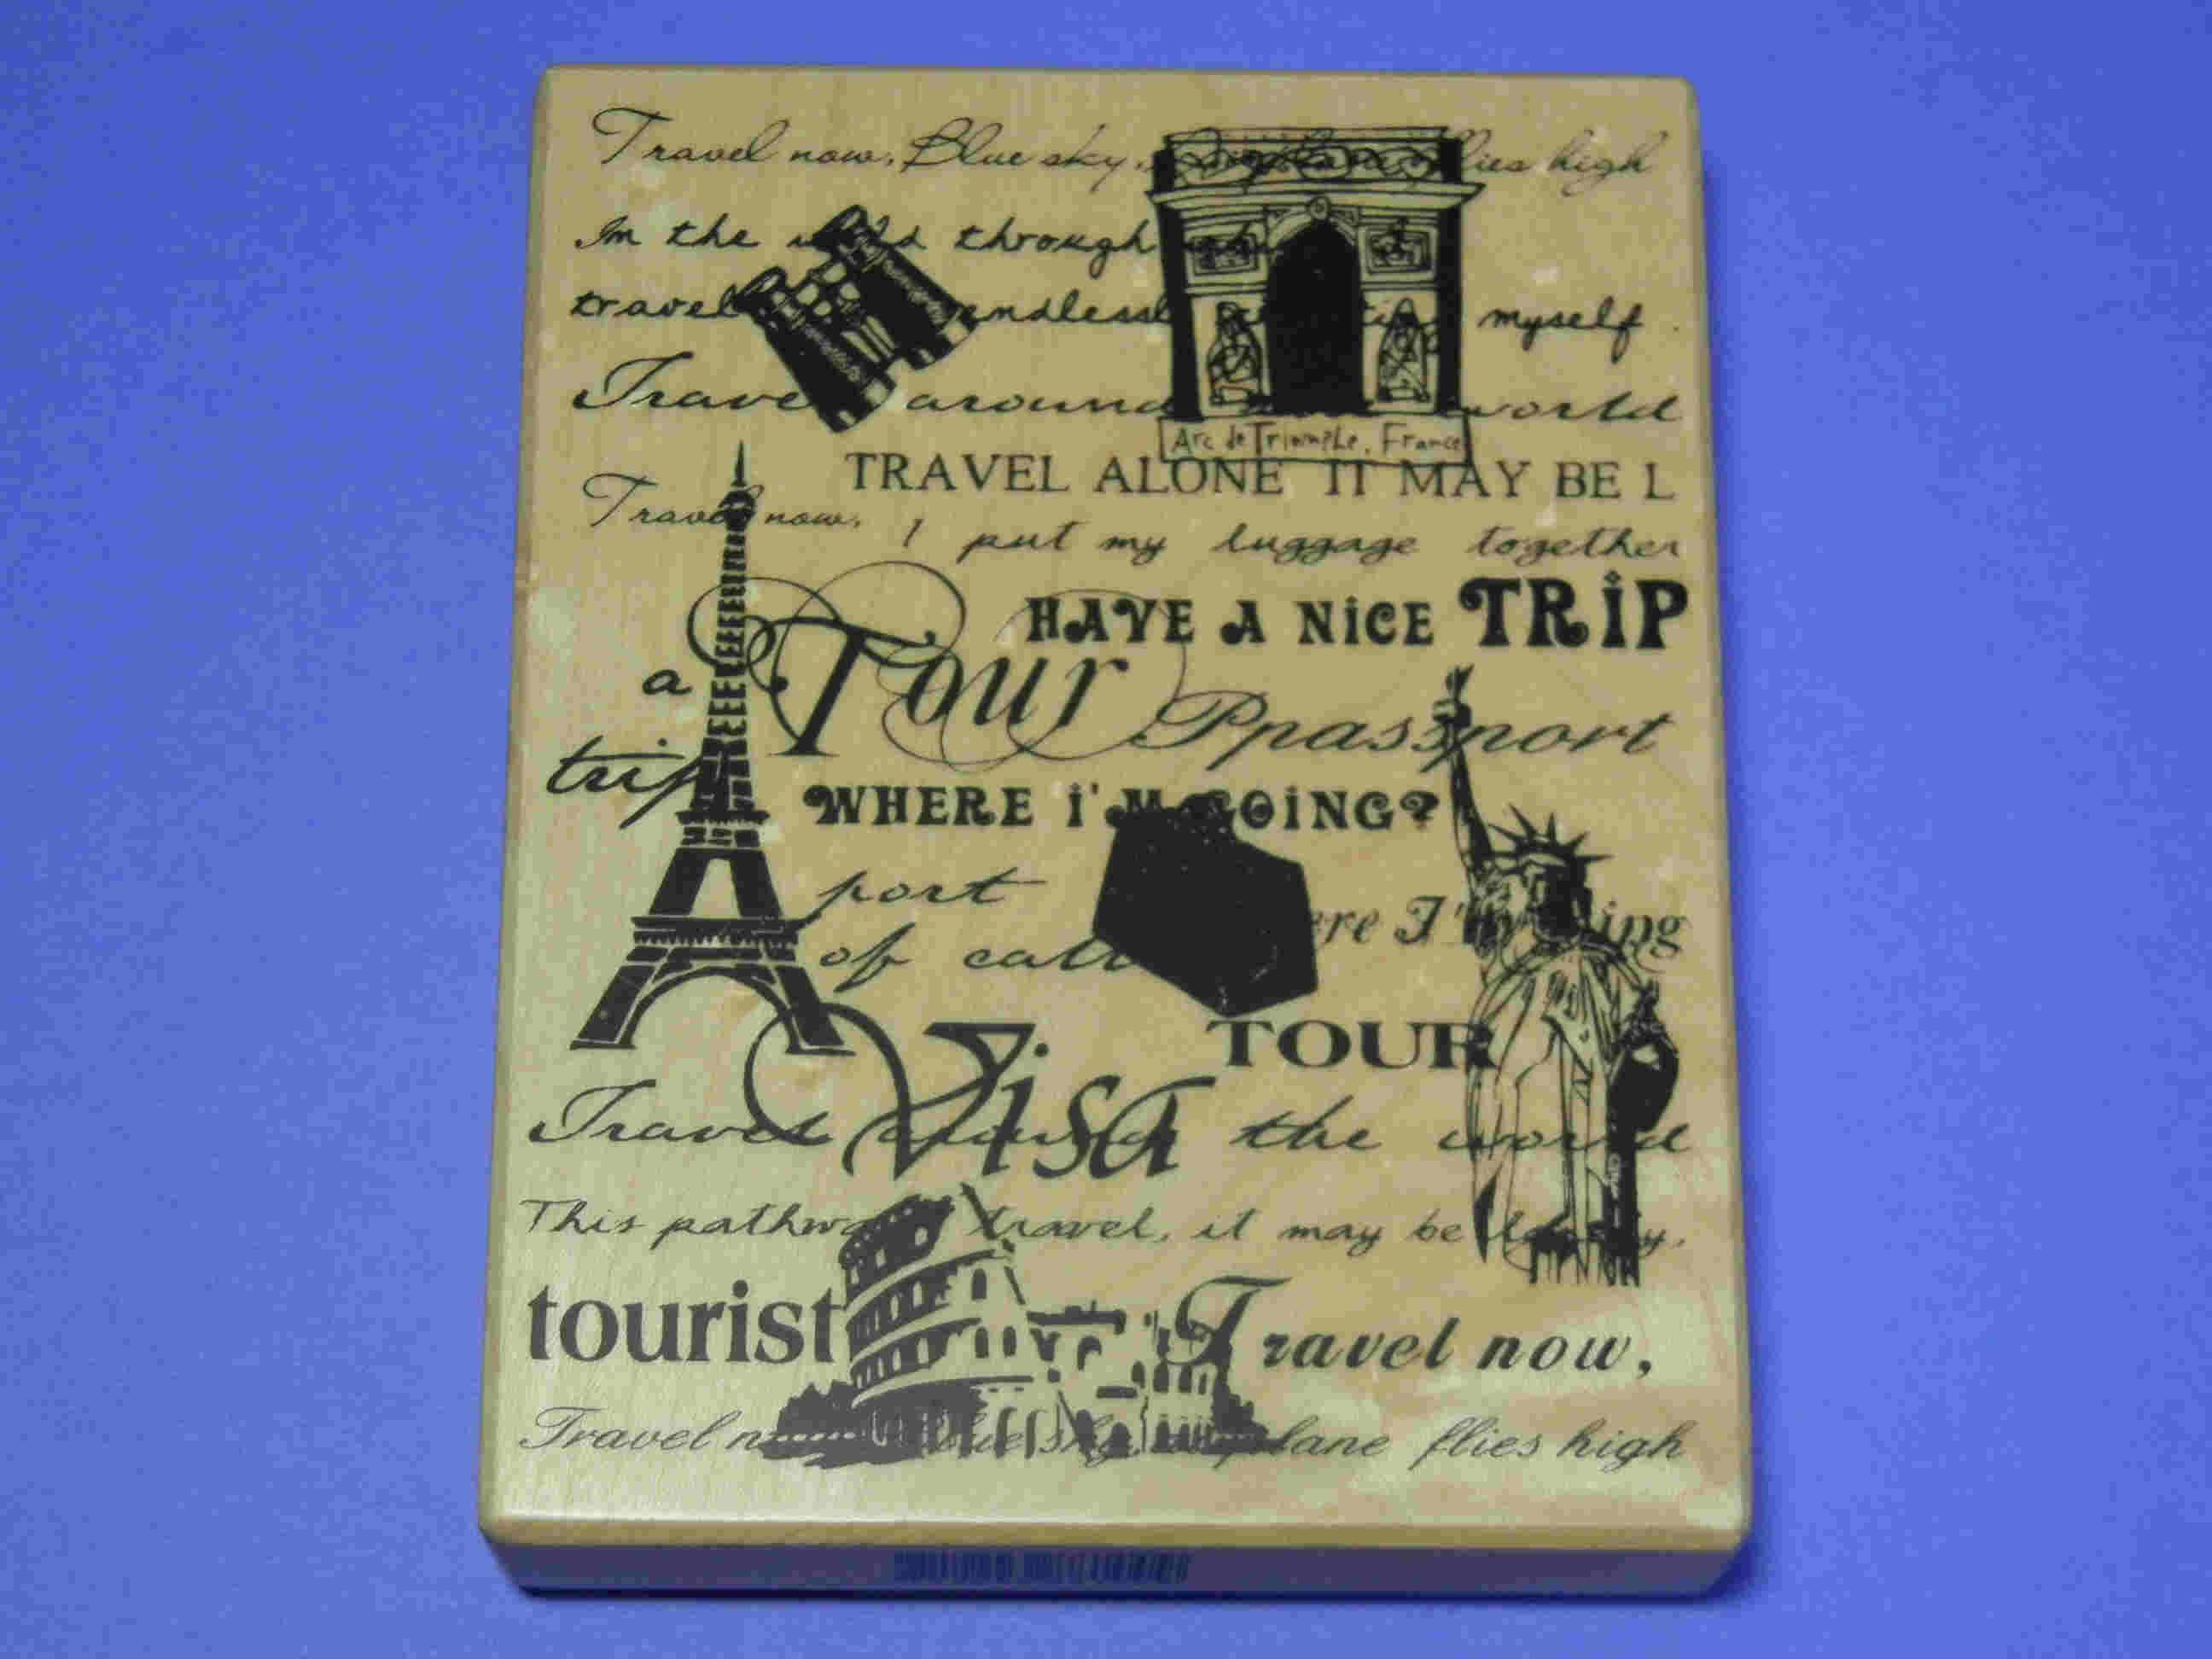 Travel now, Blue sky, flies high
In the through
travel endlessl myself
Travel around world
Arc de Triomphe, France
TRAVEL ALONE IT MAY BE L
Travel now,
I put my luggage together
HAVE A NICE TRIP
a Tour
Ppassport
trip
WHERE I'M GOING?
port
ere I'm going
of call
TOUR
Visa
Travel around the world
This pathway travel, it may be
tourist
Travel now,
Travel Blue sky, airplane flies high